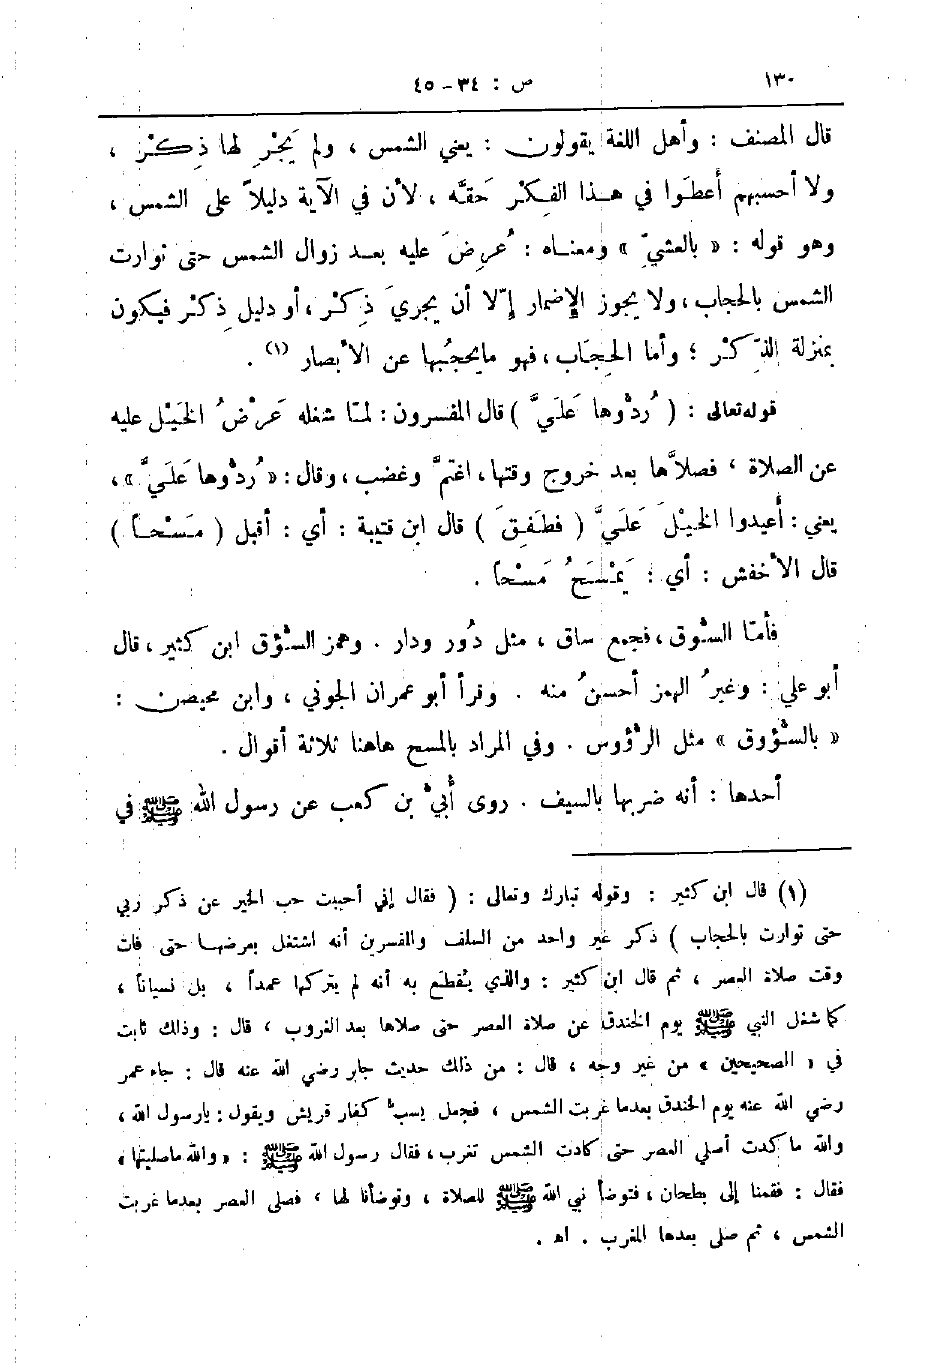 ١٣٠
ص : ٣٤ - ٤٥
قال المصنف : وأهل اللغة يقولون : يعني الشمس ، ولم يَجْرِ لها ذِكْرٌ ،
ولا أحسبهم أعطَوا في هذا الفِكْر حَقَّه ، لأن في الآية دليلاً على الشمس ،
وهو قوله : « بالعشيّ » ومعناه : عُرِضَ عليه بعد زوال الشمس حتى توارت
الشمس بالحجاب ، ولا يجوز الإِضمار إِلا أن يجريَ ذِكْر ، أو دليل ذِكْر فيكون
بمنزلة الذِّكْر ؛ وأما الحِجَاب ، فهو مايحجُبها عن الأبصار (١) .
قوله تعالى : ( رُدُّوها عَلَيَّ ) قال المفسرون : لمّا شغله عَرْضُ الخَيْل عليه
عن الصلاة ، فصلاَّها بعد خروج وقتها ، اغتمَّ وغضب ، وقال : « رُدُّوها عَلَيَّ » ،
يعني : أعيدوا الخَيْلَ عَلَيَّ ( فطَفِقَ ) قال ابن قتيبة : أي : أقبل ( مَسْحاً )
قال الأخفش : أي : يَمْسَحُ مَسْحاً .
فأمّا السُّوق ، فجمع ساق ، مثل دُور ودار . وهمز السُّؤق ابن كثير ، قال
أبو علي : وغيرُ الهمز أحسنُ منه . وقرأ أبو عمران الجوني ، وابن محيصن :
« بالسُّؤوق » مثل الرُّؤوس . وفي المراد بالمسح هاهنا ثلاثة أقوال .
أحدها : أنه ضربها بالسيف . روى أُبيُّ بن كعب عن رسول الله ﷺ في
(١) قال ابن كثير : وقوله تبارك وتعالى : ( فقال إني أحببت حب الخير عن ذكر ربي
حتى توارت بالحجاب ) ذكر غير واحد من السلف والمفسرين أنه اشتغل بعرضها حتى فات
وقت صلاة العصر ، ثم قال ابن كثير : والذي يُقطع به أنه لم يتركها عمداً ، بل نسياناً ،
كما شغل النبي ﷺ يوم الخندق عن صلاة العصر حتى صلاها بعد الغروب ، قال : وذلك ثابت
في « الصحيحين » من غير وجه ، قال : من ذلك حديث جابر رضي الله عنه قال : جاء عمر
رضي الله عنه يوم الخندق بعدما غربت الشمس ، فجعل يسبُّ كفار قريش ويقول : يارسول الله ،
والله ما كدت أصلي العصر حتى كادت الشمس تغرب ، فقال رسول الله ﷺ : « والله ماصليتها »
فقال : فقمنا إلى بطحان ، فتوضأ نبي الله ﷺ للصلاة ، وتوضأنا لها ، فصلى العصر بعدما غربت
الشمس ، ثم صلى بعدها المغرب . اه .